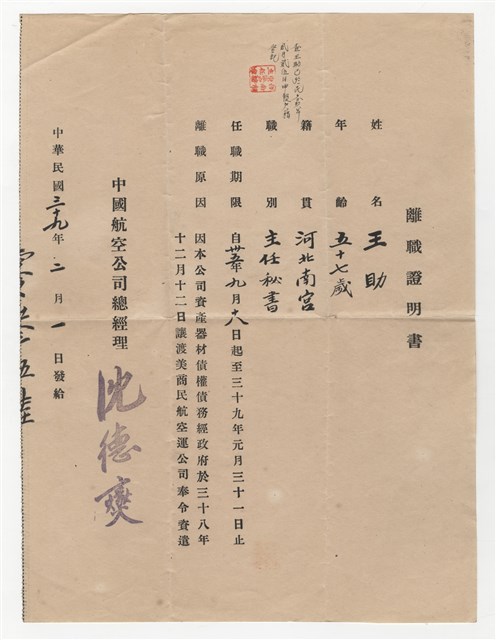 離職證明書
姓名 王助
年齡 五十七歲
籍貫 河北南宮
職別 主任秘書
任職期限 自卅五年九月十八日起至三十九年元月三十一日止
離職原因 因本公司資產器材債權債務經政府於三十八年
十二月十二日讓渡美商民航空運公司奉令資遣
中國航空公司總經理 沈德燮
中華民國三九年二月一日發給